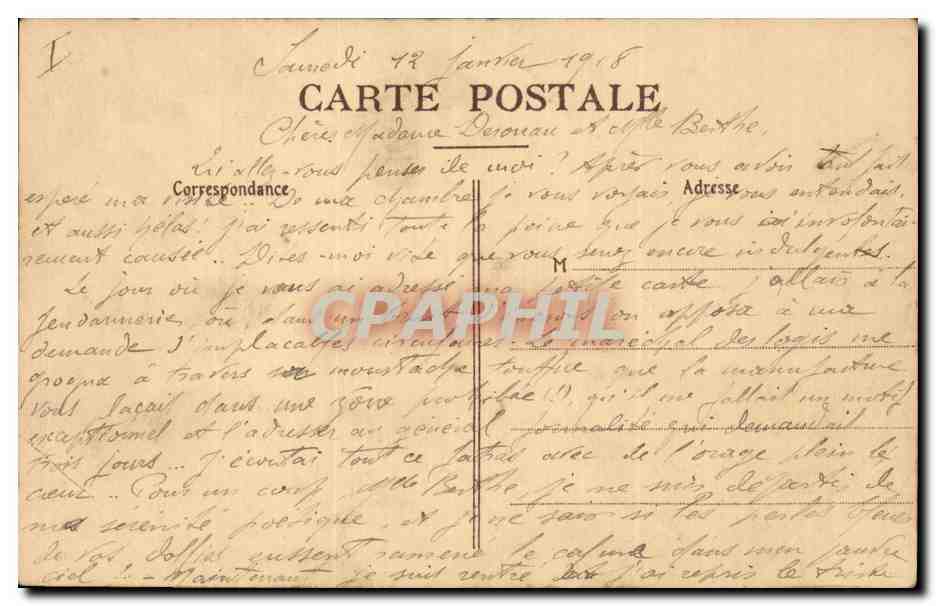 I
Samedi 12 janvier 1918
CARTE POSTALE
Chères Madame et Mlle Berthe,
Qu'allez-vous penser de moi? Après vous avoir tout fait
Correspondance
Adresse
espéré ma visite.. De ma chambre je vous voyais, je vous entendais,
et aussi hélas! j'ai ressenti toute la peine que je vous ai involontai-
rement causée.. Dites-moi vite que vous serez encore indulgentes.
M
Le jour où je vous ai adressé ma petite carte j'allais à la
CPAPHIL
gendarmerie où, dans un on opposa à ma
demande d'implacables circulaires. Le maréchal des logis me
grogna à travers sa moustache touffue que la manufacture
vous plaçait dans une zone prohibée (!), qu'il me fallait un motif
exceptionnel et l'adresser au général formalité qui demandait
trois jours... J'écoutai tout ce fatras avec de l'orage plein le
cœur.. Pour un coup, Mlle Berthe, je me suis départi de
ma sérénité poétique, et je ne sais si les perles bleues
de vos eussent ramené le calme dans mon
ciel!! - Maintenant je suis rentré j'ai repris le triste